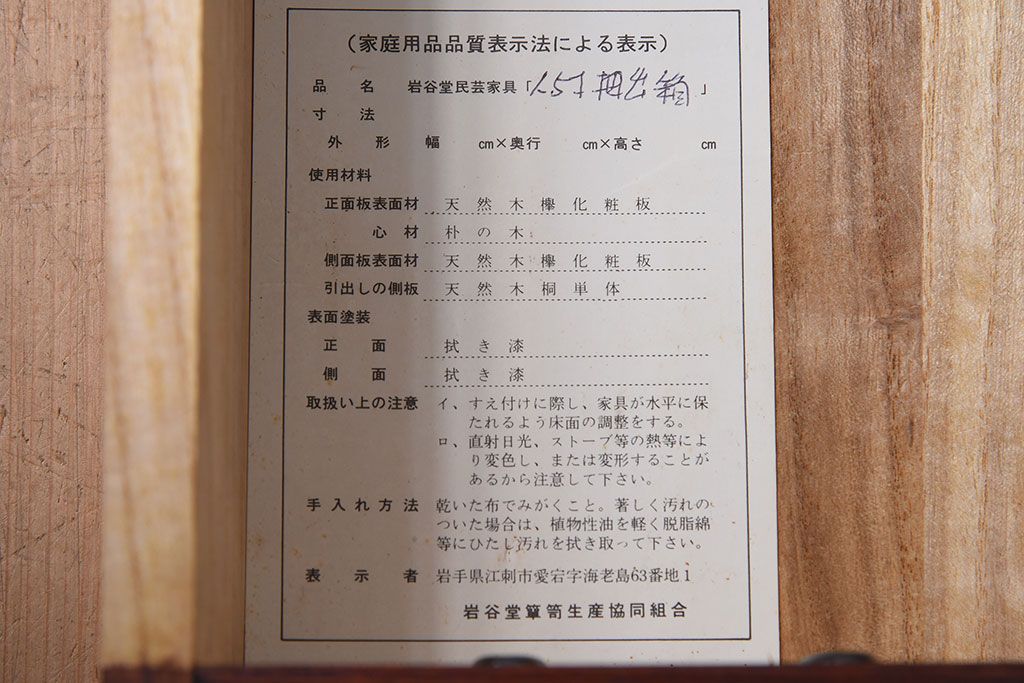 （家庭用品品質表示法による表示）
品名 岩谷堂民芸家具「 抽出箱」
寸法
外形 幅 ㎝×奥行 ㎝×高さ ㎝
使用材料
正面板表面材 天然木欅化粧板
心材 朴の木
側面板表面材 天然木欅化粧板
引出しの側板 天然木桐単体
表面塗装
正面 拭き漆
側面 拭き漆
取扱い上の注意 イ、すえ付けに際し、家具が水平に保
たれるよう床面の調整をする。
ロ、直射日光、ストーブ等の熱等によ
り変色し、または変形することが
あるから注意して下さい。
手入れ方法 乾いた布でみがくこと。著しく汚れの
ついた場合は、植物性油を軽く脱脂綿
等にひたし汚れを拭き取って下さい。
表示者 岩手県江刺市愛宕字海老島63番地1
岩谷堂簞笥生産協同組合